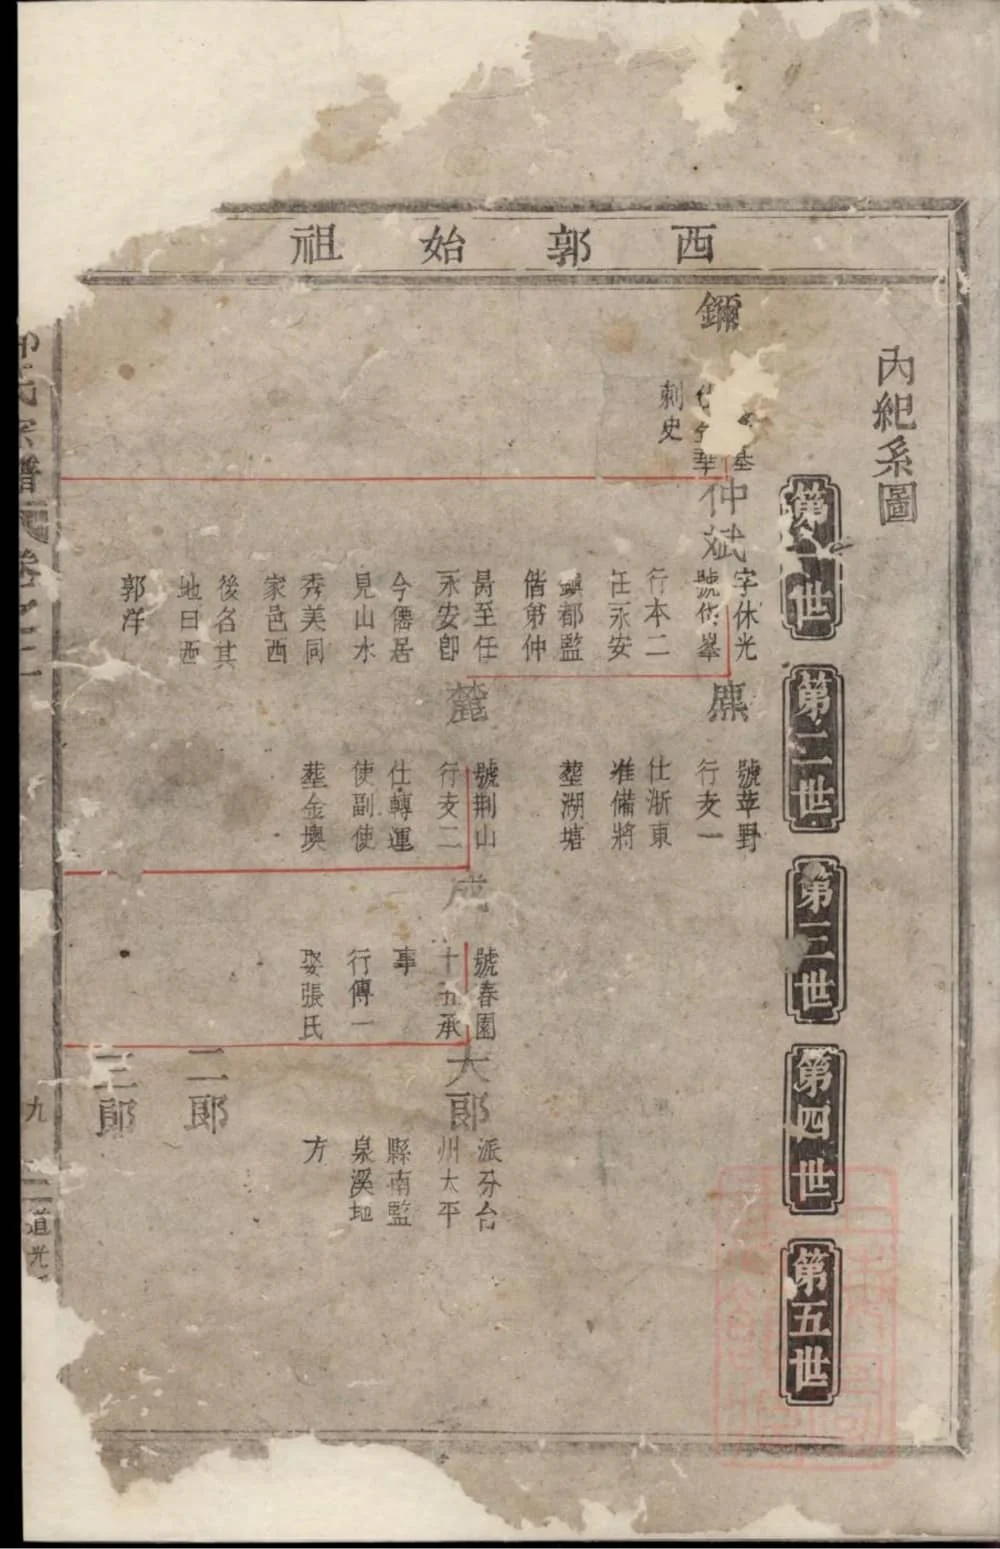 西郭始祖
內紀系圖
第一世
第二世
第三世
第四世
第五世
鑈
刺史
仲斌
字休光
號筀峯
行本二
任永安
鎮都監
偕第仲
昺至任
永安卽
今僑居
見山水
秀美同
家邑西
後名其
地曰西
郭洋
麃
號苹野
行支一
仕浙東
准備將
塟湖塘
麓
號荆山
行支二
仕轉運
使副使
塟金墺
成
號春園
十五承
事
行傳一
娶張氏
大郞
派分台
州太平
縣南監
泉溪地
方
二郞
三郞
氏宗譜
卷之二
九
道光